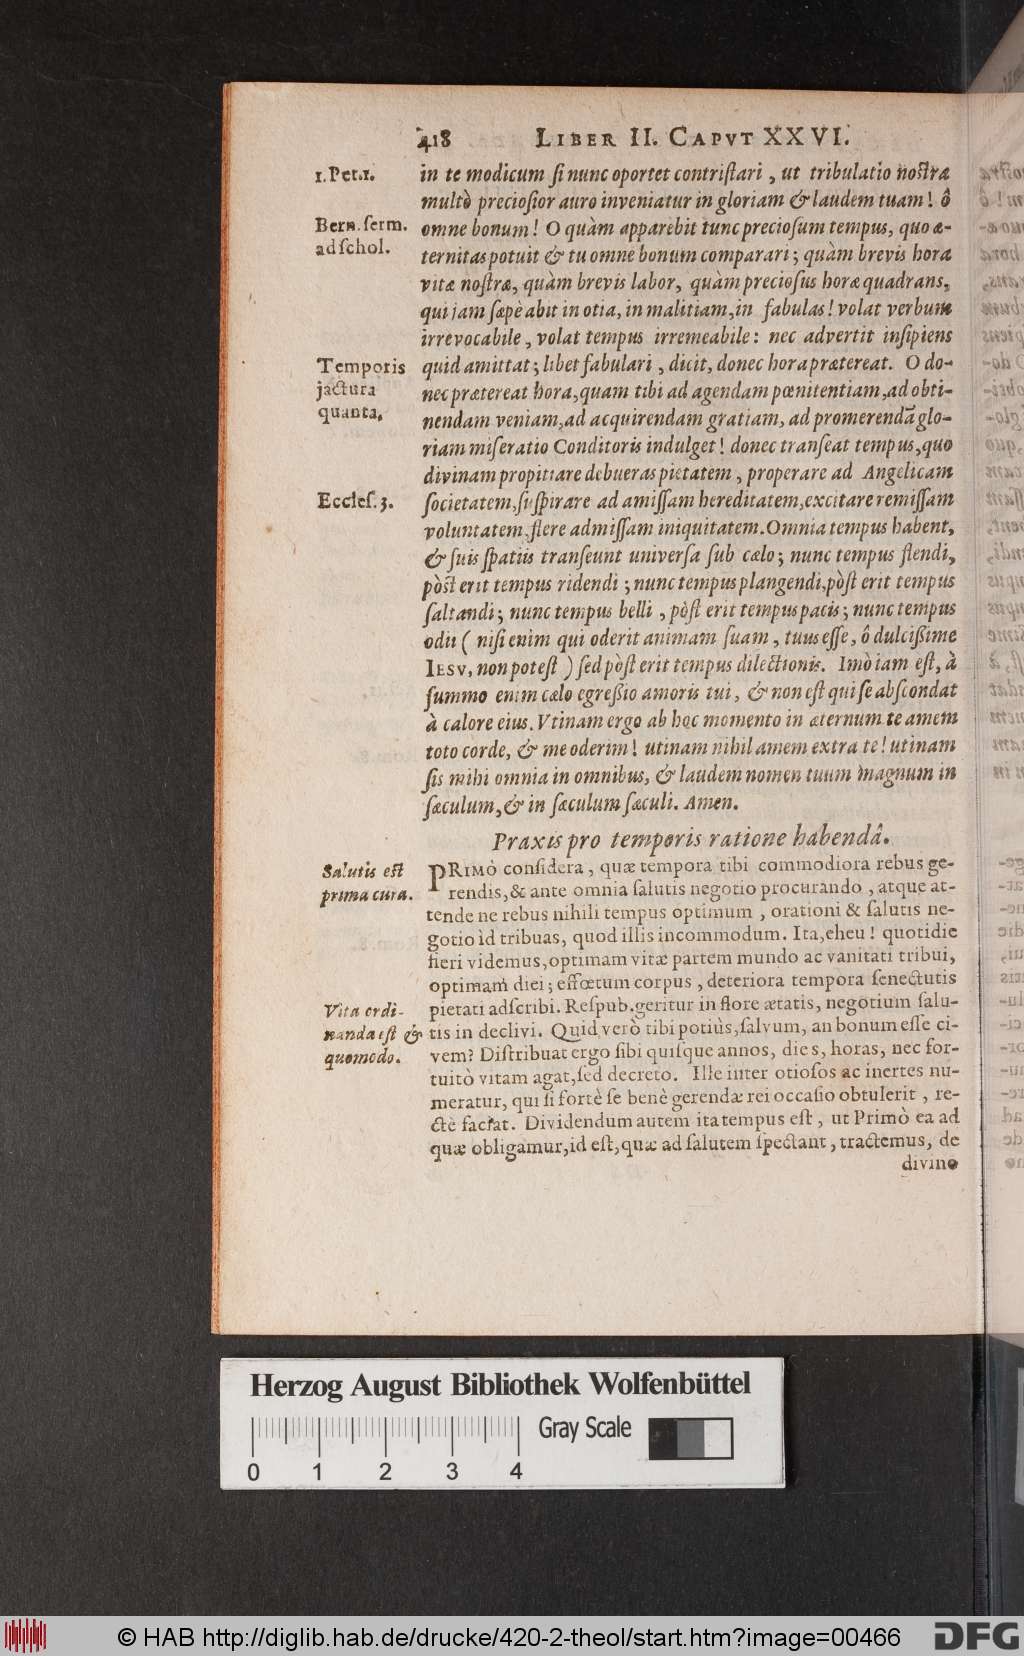 418 LIBER II. CAPVT XXVI.
1. Pet. 1.
in te modicum ſi nunc oportet contriſtari, ut tribulatio noſtra
multò precioſior auro inveniatur in gloriam & laudem tuam! ô
Bern. ſerm.
ad ſchol.
omne bonum! O quàm apparebit tunc precioſum tempus, quo æ-
ternitas potuit & tu omne bonum comparari; quàm brevis hora
vitæ noſtræ, quàm brevis labor, quàm precioſus horæ quadrans,
qui jam ſæpè abit in otia, in malitiam, in fabulas! volat verbum
irrevocabile, volat tempus irremeabile: nec advertit inſipiens
Temporis
jactura
quanta.
quid amittat; libet fabulari, dicit, donec hora prætereat. O do-
nec prætereat hora, quam tibi ad agendam pœnitentiam, ad obti-
nendam veniam, ad acquirendam gratiam, ad promerendã glo-
riam miſeratio Conditoris indulget! donec tranſeat tempus, quo
divinam propitiare debueras pietatem, properare ad Angelicam
Eccleſ. 3.
ſocietatem, ſuſpirare ad amiſſam hereditatem, excitare remiſſam
voluntatem, flere admiſſam iniquitatem. Omnia tempus habent,
& ſuis ſpatiis tranſeunt univerſa ſub cælo; nunc tempus flendi,
pòſt erit tempus ridendi; nunc tempus plangendi, pòſt erit tempus
ſaltandi; nunc tempus belli, pòſt erit tempus pacis; nunc tempus
odii ( niſi enim qui oderit animam ſuam, tuus eſſe, ô dulciſſime
IESV, non poteſt ) ſed pòſt erit tempus dilectionis. Imò iam eſt, à
ſummo enim cælo egreſſio amoris tui, & non eſt qui ſe abſcondat
à calore eius. Vtinam ergo ab hoc momento in æternum te amem
toto corde, & me oderim! utinam nihil amem extra te! utinam
ſis mihi omnia in omnibus, & laudem nomen tuum magnum in
ſæculum, & in ſæculum ſæculi. Amen.
Praxis pro temporis ratione habendâ.
Salutis eſt
prima cura.
PRIMÒ conſidera, quæ tempora tibi commodiora rebus ge-
rendis, & ante omnia ſalutis negotio procurando, atque at-
tende ne rebus nihili tempus optimum, orationi & ſalutis ne-
gotio id tribuas, quod illis incommodum. Ita, eheu! quotidie
fieri videmus, optimam vitæ partem mundo ac vanitati tribui,
optimam diei; effœtum corpus, deteriora tempora ſenectutis
Vita ordi-
nanda eſt &
quomodo.
pietati adſcribi. Reſpub. geritur in flore ætatis, negotium ſalu-
tis in declivi. Quid verò tibi potiùs, ſalvum, an bonum eſſe ci-
vem? Diſtribuat ergo ſibi quiſque annos, dies, horas, nec for-
tuitò vitam agat, ſed decreto. Ille inter otioſos ac inertes nu-
meratur, qui ſi fortè ſe benè gerendæ rei occaſio obtulerit, re-
ctè faciat. Dividendum autem ita tempus eſt, ut Primò ea ad
quæ obligamur, id eſt, quæ ad ſalutem ſpectant, tractemus, de
divino
Herzog August Bibliothek Wolfenbüttel
Gray Scale
0 1 2 3 4
© HAB http://diglib.hab.de/drucke/420-2-theol/start.htm?image=00466
DFG